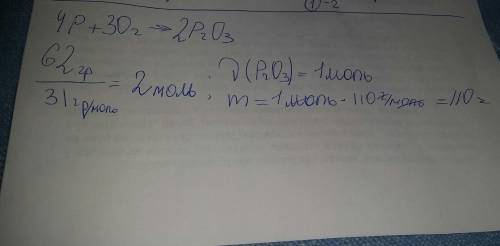 ① -2
4P + 3O₂ → 2P₂O₃
62 гр / 31 гр/моль = 2 моль ; ν (P₂O₃) = 1 моль
m = 1 моль · 110 г/моль = 110 г